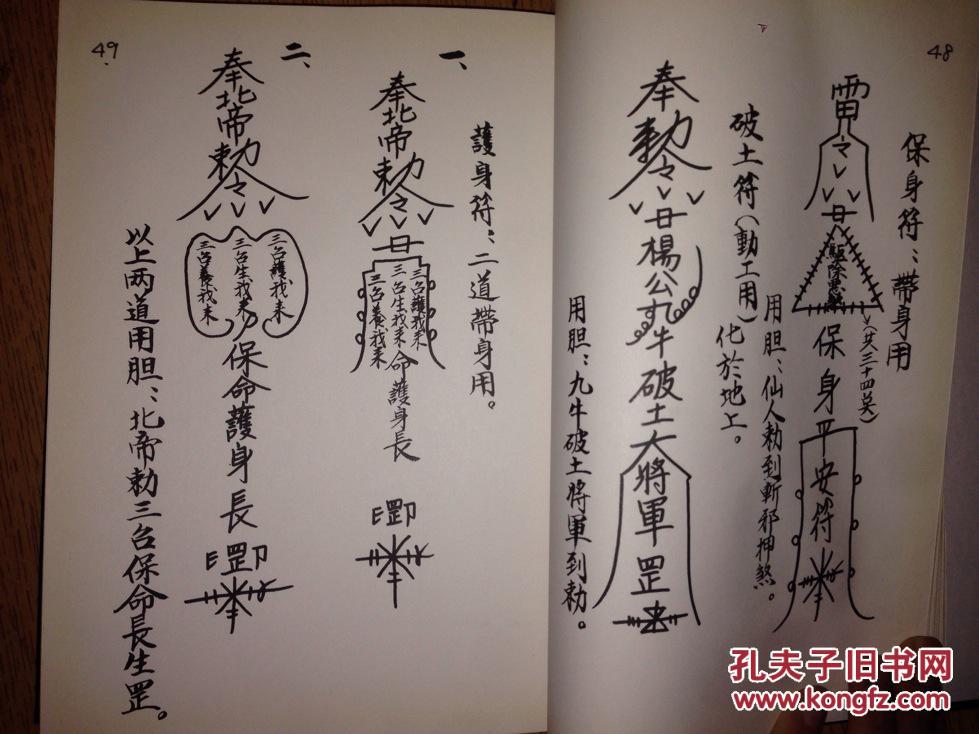 48
保身符：帶身用
雷令
驅除惡煞
(共三十四㚒)
保身平安符
用胆：仙人勅到斬邪押煞。
破土符(動工用)化於地上。
奉勅令
楊公九牛破土大將軍罡
用胆：九牛破土將軍到勅。
49
護身符：二道帶身用。
一、
奉北帝勅令
三台護我來
三台生我來
三台養我來
命護身長
罡印
二、
奉北帝勅令
三台護我來
三台生我來
三台養我來
保命護身長
罡印
以上两道用胆：北帝勅三台保命長生罡。
孔夫子旧书网
www.kongfz.com